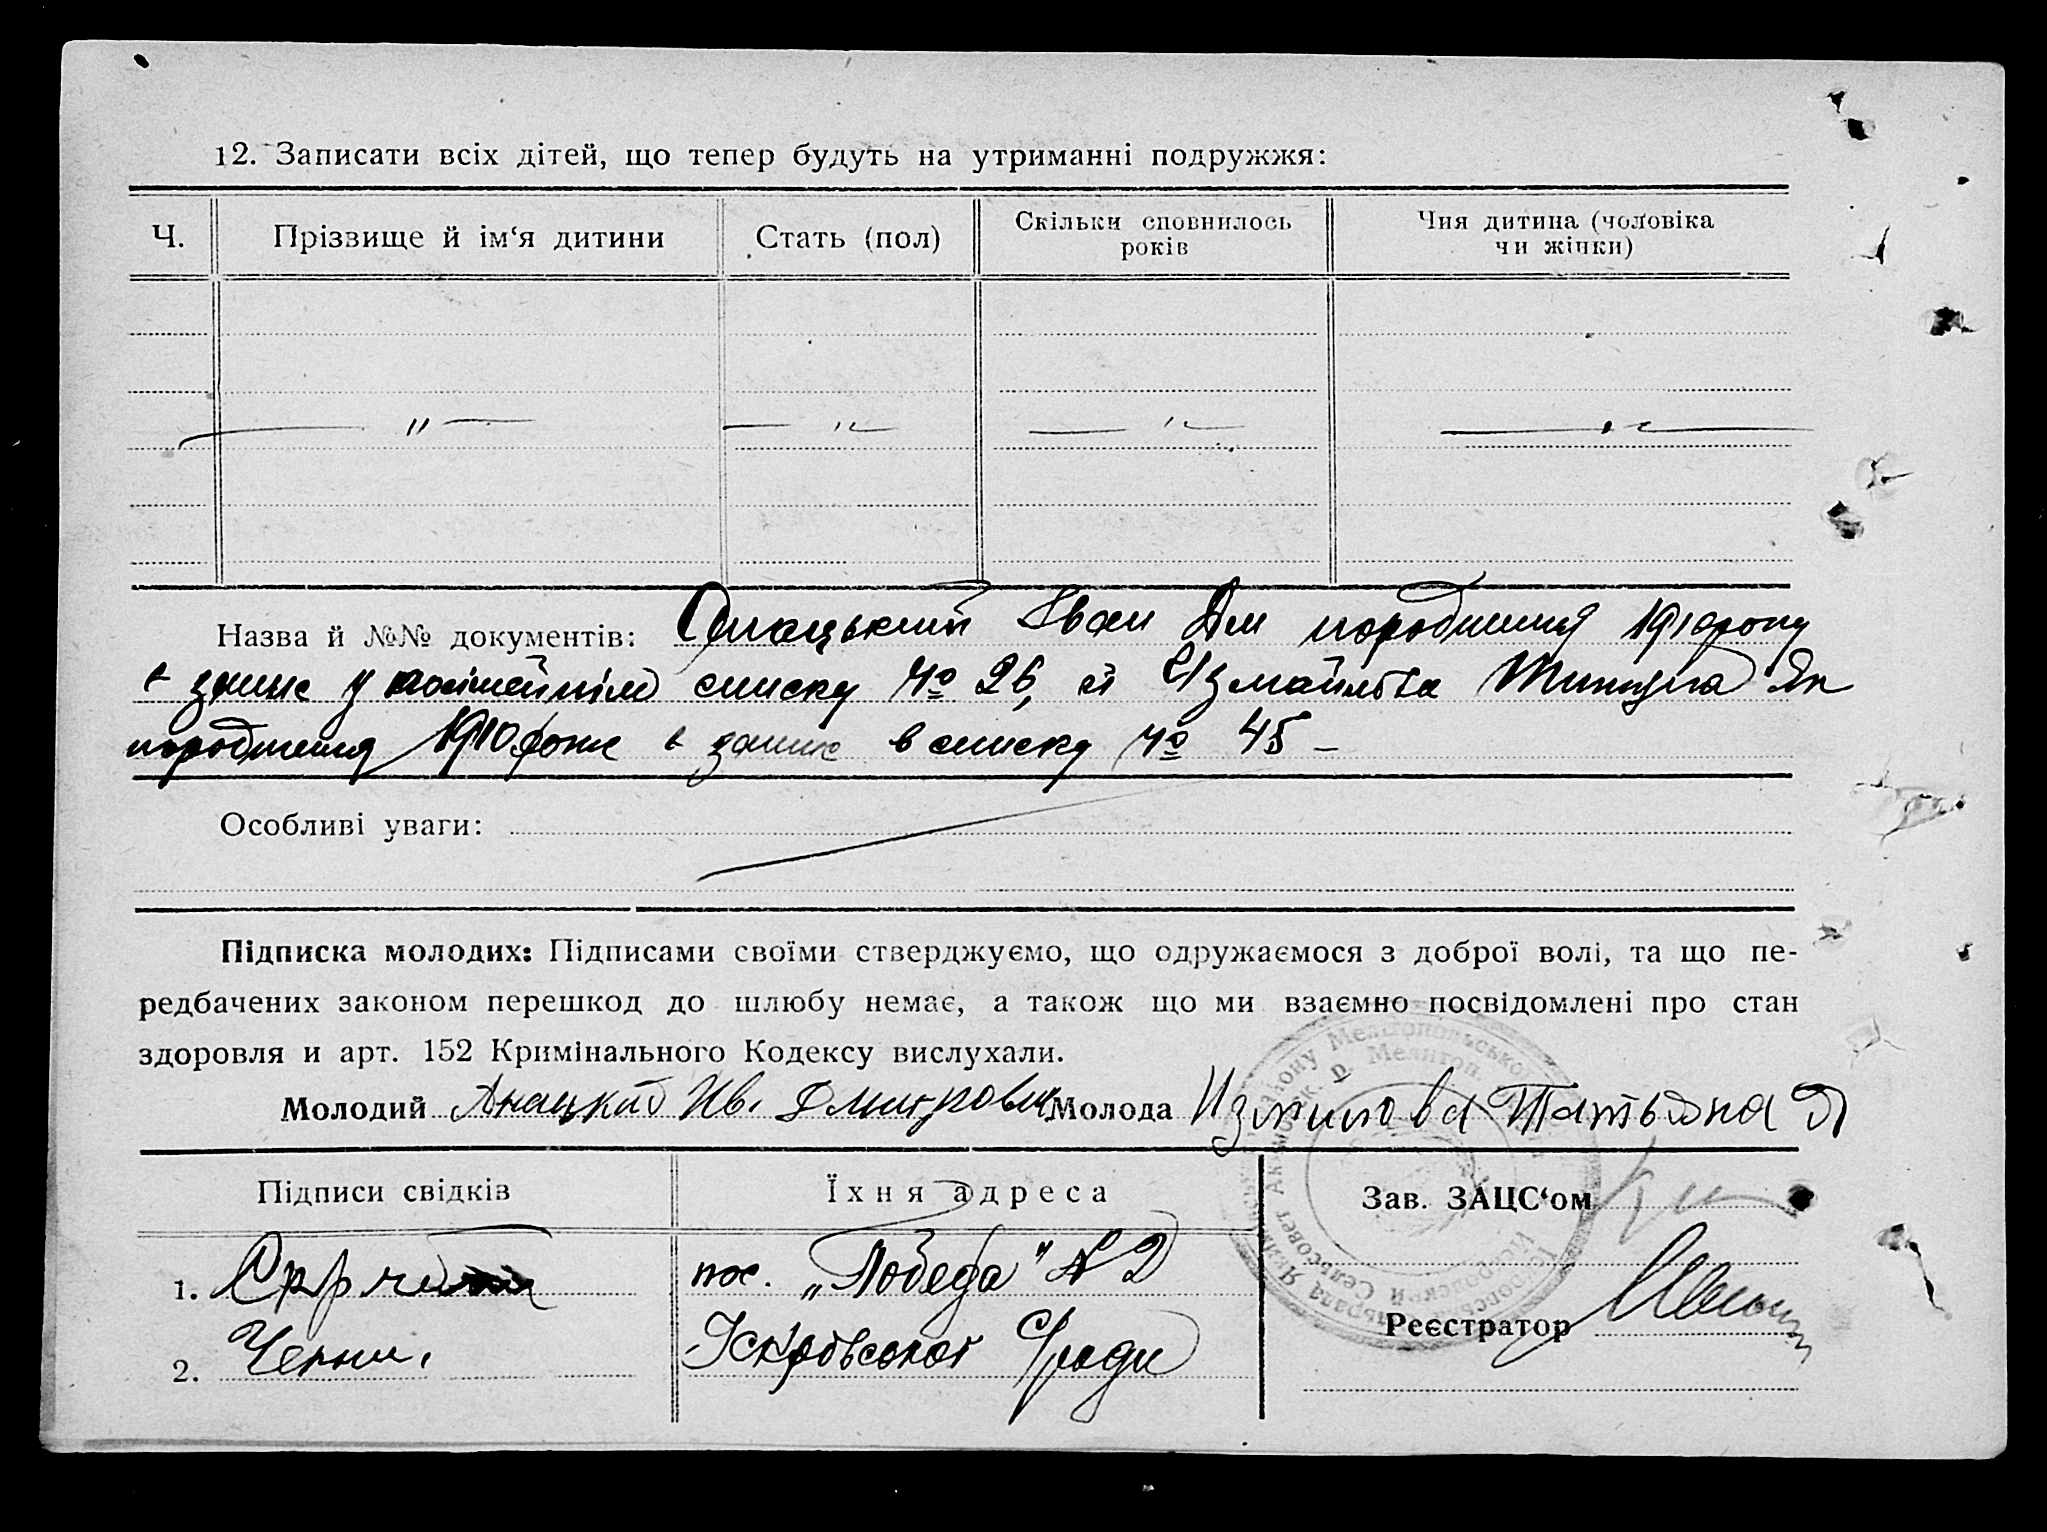 12. Записати всіх дітей, що тепер будуть на утриманні подружжя:
Ч. Прізвище й ім‘я дитини Стать (пол) Скільки сповнилось років Чия дитина (чоловіка чи жінки)
— " — — " — — " — — " —
Назва й №№ документів: Іван Дм породження 1910 року
є запис у посімейнім списку № 26, а Ізмайлова Як
породження 1910 року є запис в списку № 45 –
Особливі уваги:
Підписка молодих: Підписами своїми стверджуємо, що одружаємося з доброї волі, та що пе-
редбачених законом перешкод до шлюбу немає, а також що ми взаємно посвідомлені про стан
здоровля и арт. 152 Кримінального Кодексу вислухали.
Молодий Ив. Дмитрович Молода Измаилова Татьяна Я
Підписи свідків Їхня адреса Зав. ЗАЦС‘ом
1. пос. „Победа" № 2
2. Реєстратор